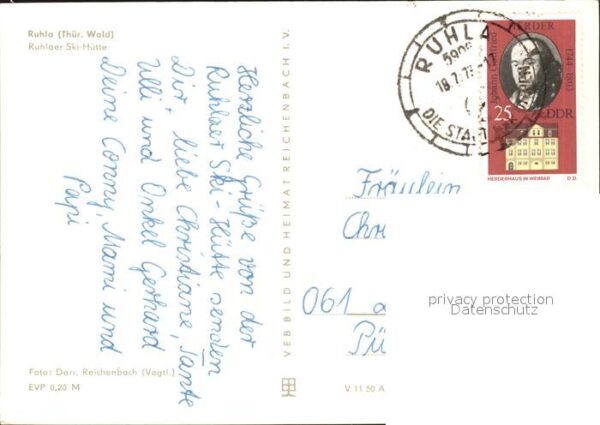 Ruhla (Thür. Wald)
Ruhlaer Ski-Hütte
Herzliche Grüße von der
Ruhlaer Ski-Hütte senden
Dir, liebe Christiane, Tante
Ulli und Onkel Gerhard
Deine Conny, Mami und
Papi
Foto: Darr, Reichenbach (Vogtl.)
EVP 0,20 M
VEB BILD UND HEIMAT REICHENBACH I. V.
V 11 50 A
RUHLA
18.7.7
DIE STA
Johann Gottfried
HERDER
1744-1803
25
DDR
HERDERHAUS IN WEIMAR
D.D.
Fräulein
Chr
061 a
Pü
privacy protection
Datenschutz